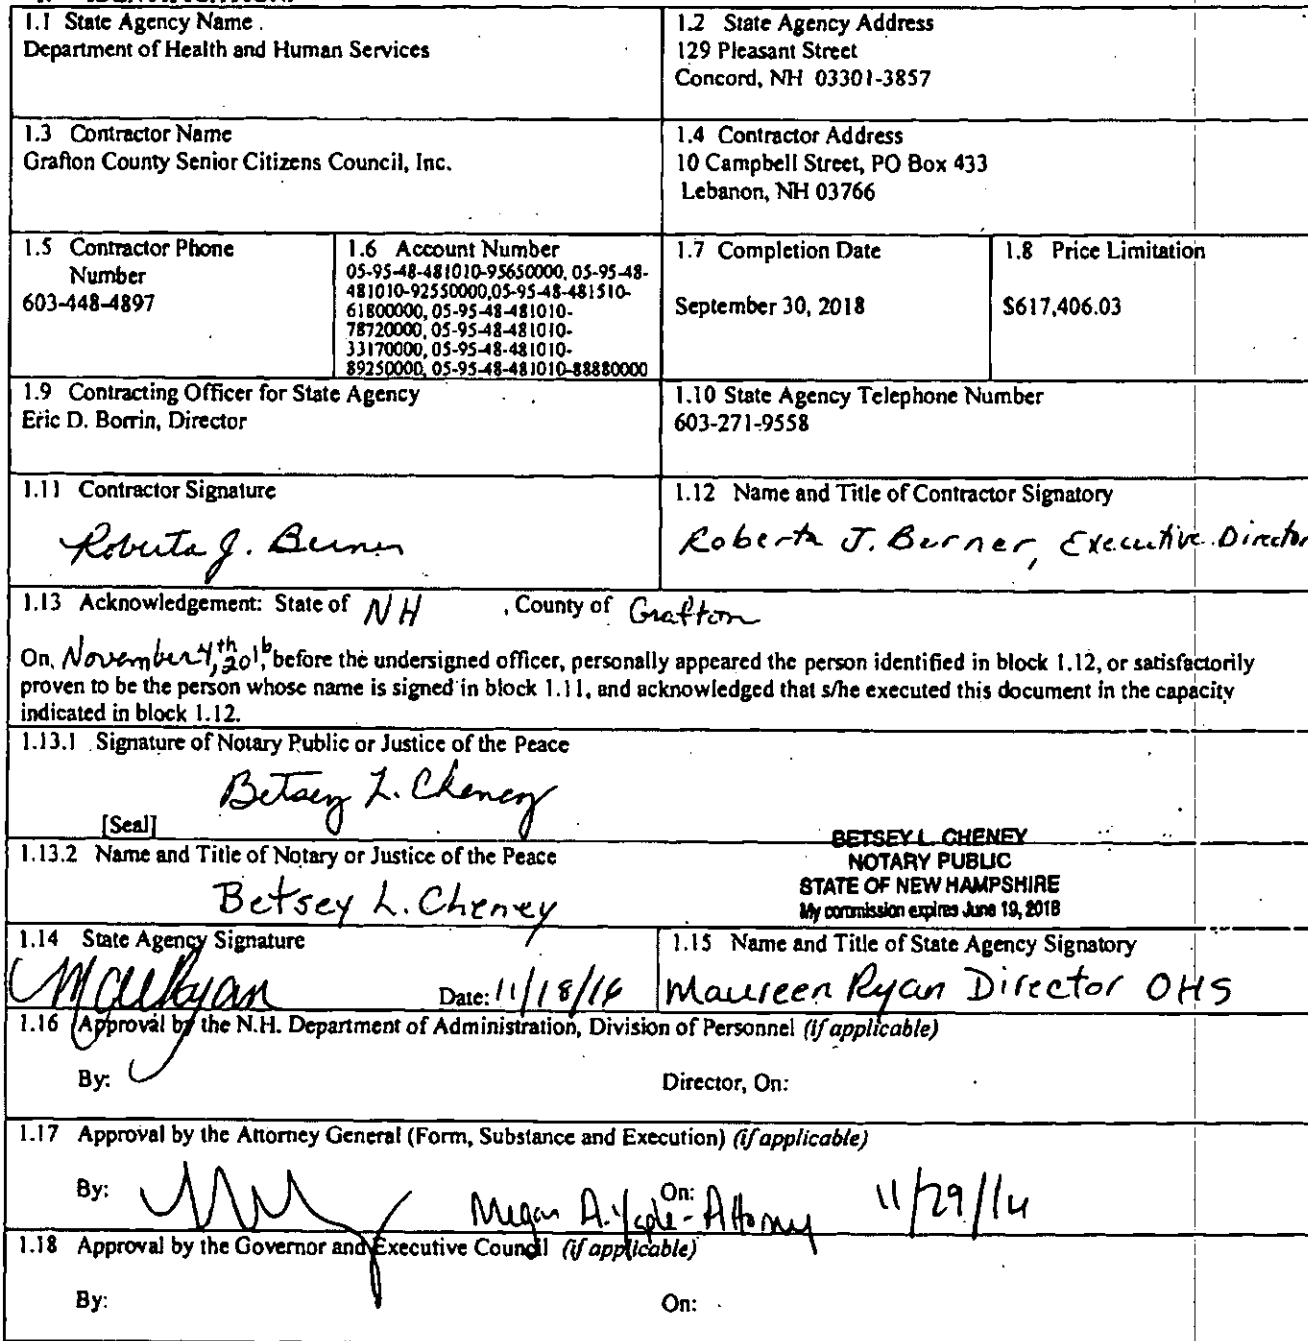 1.1 State Agency Name
Department of Health and Human Services
1.2 State Agency Address
129 Pleasant Street
Concord, NH 03301-3857
1.3 Contractor Name
Grafton County Senior Citizens Council, Inc.
1.4 Contractor Address
10 Campbell Street, PO Box 433
Lebanon, NH 03766
1.5 Contractor Phone
Number
603-448-4897
1.6 Account Number
05-95-48-481010-95650000, 05-95-48-
481010-92550000,05-95-48-481510-
61800000, 05-95-48-481010-
78720000, 05-95-48-481010-
33170000, 05-95-48-481010-
89250000, 05-95-48-481010-88880000
1.7 Completion Date
September 30, 2018
1.8 Price Limitation
$617,406.03
1.9 Contracting Officer for State Agency
Eric D. Borrin, Director
1.10 State Agency Telephone Number
603-271-9558
1.11 Contractor Signature
Roberta J. Berner
1.12 Name and Title of Contractor Signatory
Roberta J. Berner, Executive Director
1.13 Acknowledgement: State of NH , County of Grafton
On, November 4th, 2016, before the undersigned officer, personally appeared the person identified in block 1.12, or satisfactorily
proven to be the person whose name is signed in block 1.11, and acknowledged that s/he executed this document in the capacity
indicated in block 1.12.
1.13.1 Signature of Notary Public or Justice of the Peace
Betsey L. Cheney
[Seal]
1.13.2 Name and Title of Notary or Justice of the Peace
Betsey L. Cheney
BETSEY L. CHENEY
NOTARY PUBLIC
STATE OF NEW HAMPSHIRE
My commission expires June 19, 2018
1.14 State Agency Signature
Date: 11/18/16
1.15 Name and Title of State Agency Signatory
Maureen Ryan Director OHS
1.16 Approval by the N.H. Department of Administration, Division of Personnel (if applicable)
By:
Director, On:
1.17 Approval by the Attorney General (Form, Substance and Execution) (if applicable)
By: Megan A. - Attorney On: 11/29/16
1.18 Approval by the Governor and Executive Council (if applicable)
By:
On: